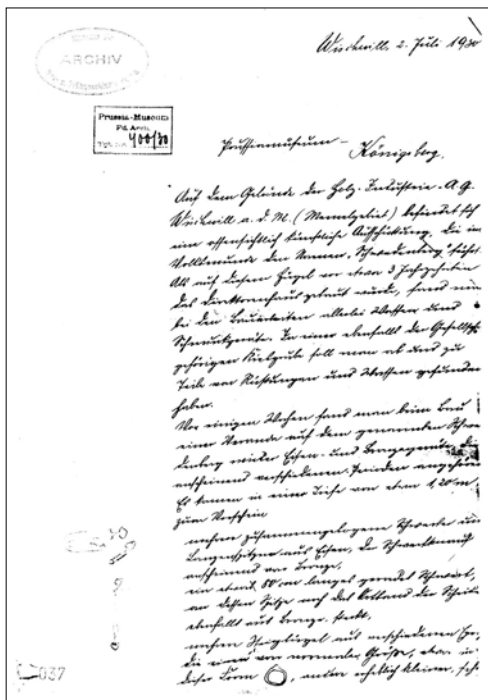 ARCHIV
Wischwill, 2. Juli 1930
Prussia-Museum
Fd. Arch.
400/30
Prussiamuseum –
Königsberg.
Auf dem Gelände der Holz-Industrie-A.G.
Wischwill a. d. M. (Memelgebiet) befindet sich
eine offensichtlich künstliche Aufschüttung, die im
Volksmunde den Namen „Schwedenberg“ führt.
Als auf diesem Hügel vor etwa 3 Jahrzehnten
das Direktorenhaus gebaut wurde, fand man
bei den Bauarbeiten allerlei Waffen und
Schmuckgeräte. In einer ebenfalls der Gesellschaft
gehörigen Kiesgrube soll man ab und zu
Teile von Rüstungen und Waffen gefunden
haben.
Vor einigen Wochen fand man beim Bau
einer Veranda auf dem genannten Schwe-
denberg wieder Eisen- und Bronzegeräte, die
anscheinend verschiedenen Perioden angehören.
Es kamen in einer Tiefe von etwa 1,20 m
zum Vorschein
mehrere zusammengebogene Schwerter und
Lanzenspitzen aus Eisen, der Schwertknauf
anscheinend aus Bronze,
ein etwa 80 cm langes gerades Schwert,
an dessen Spitze noch das Ortband der Scheide
ebenfalls aus Bronze steckt,
mehrere Steigbügel aus verschiedenen
die einen von normaler Größe, etwa in
dieser Form , andere erheblich kleiner,
037